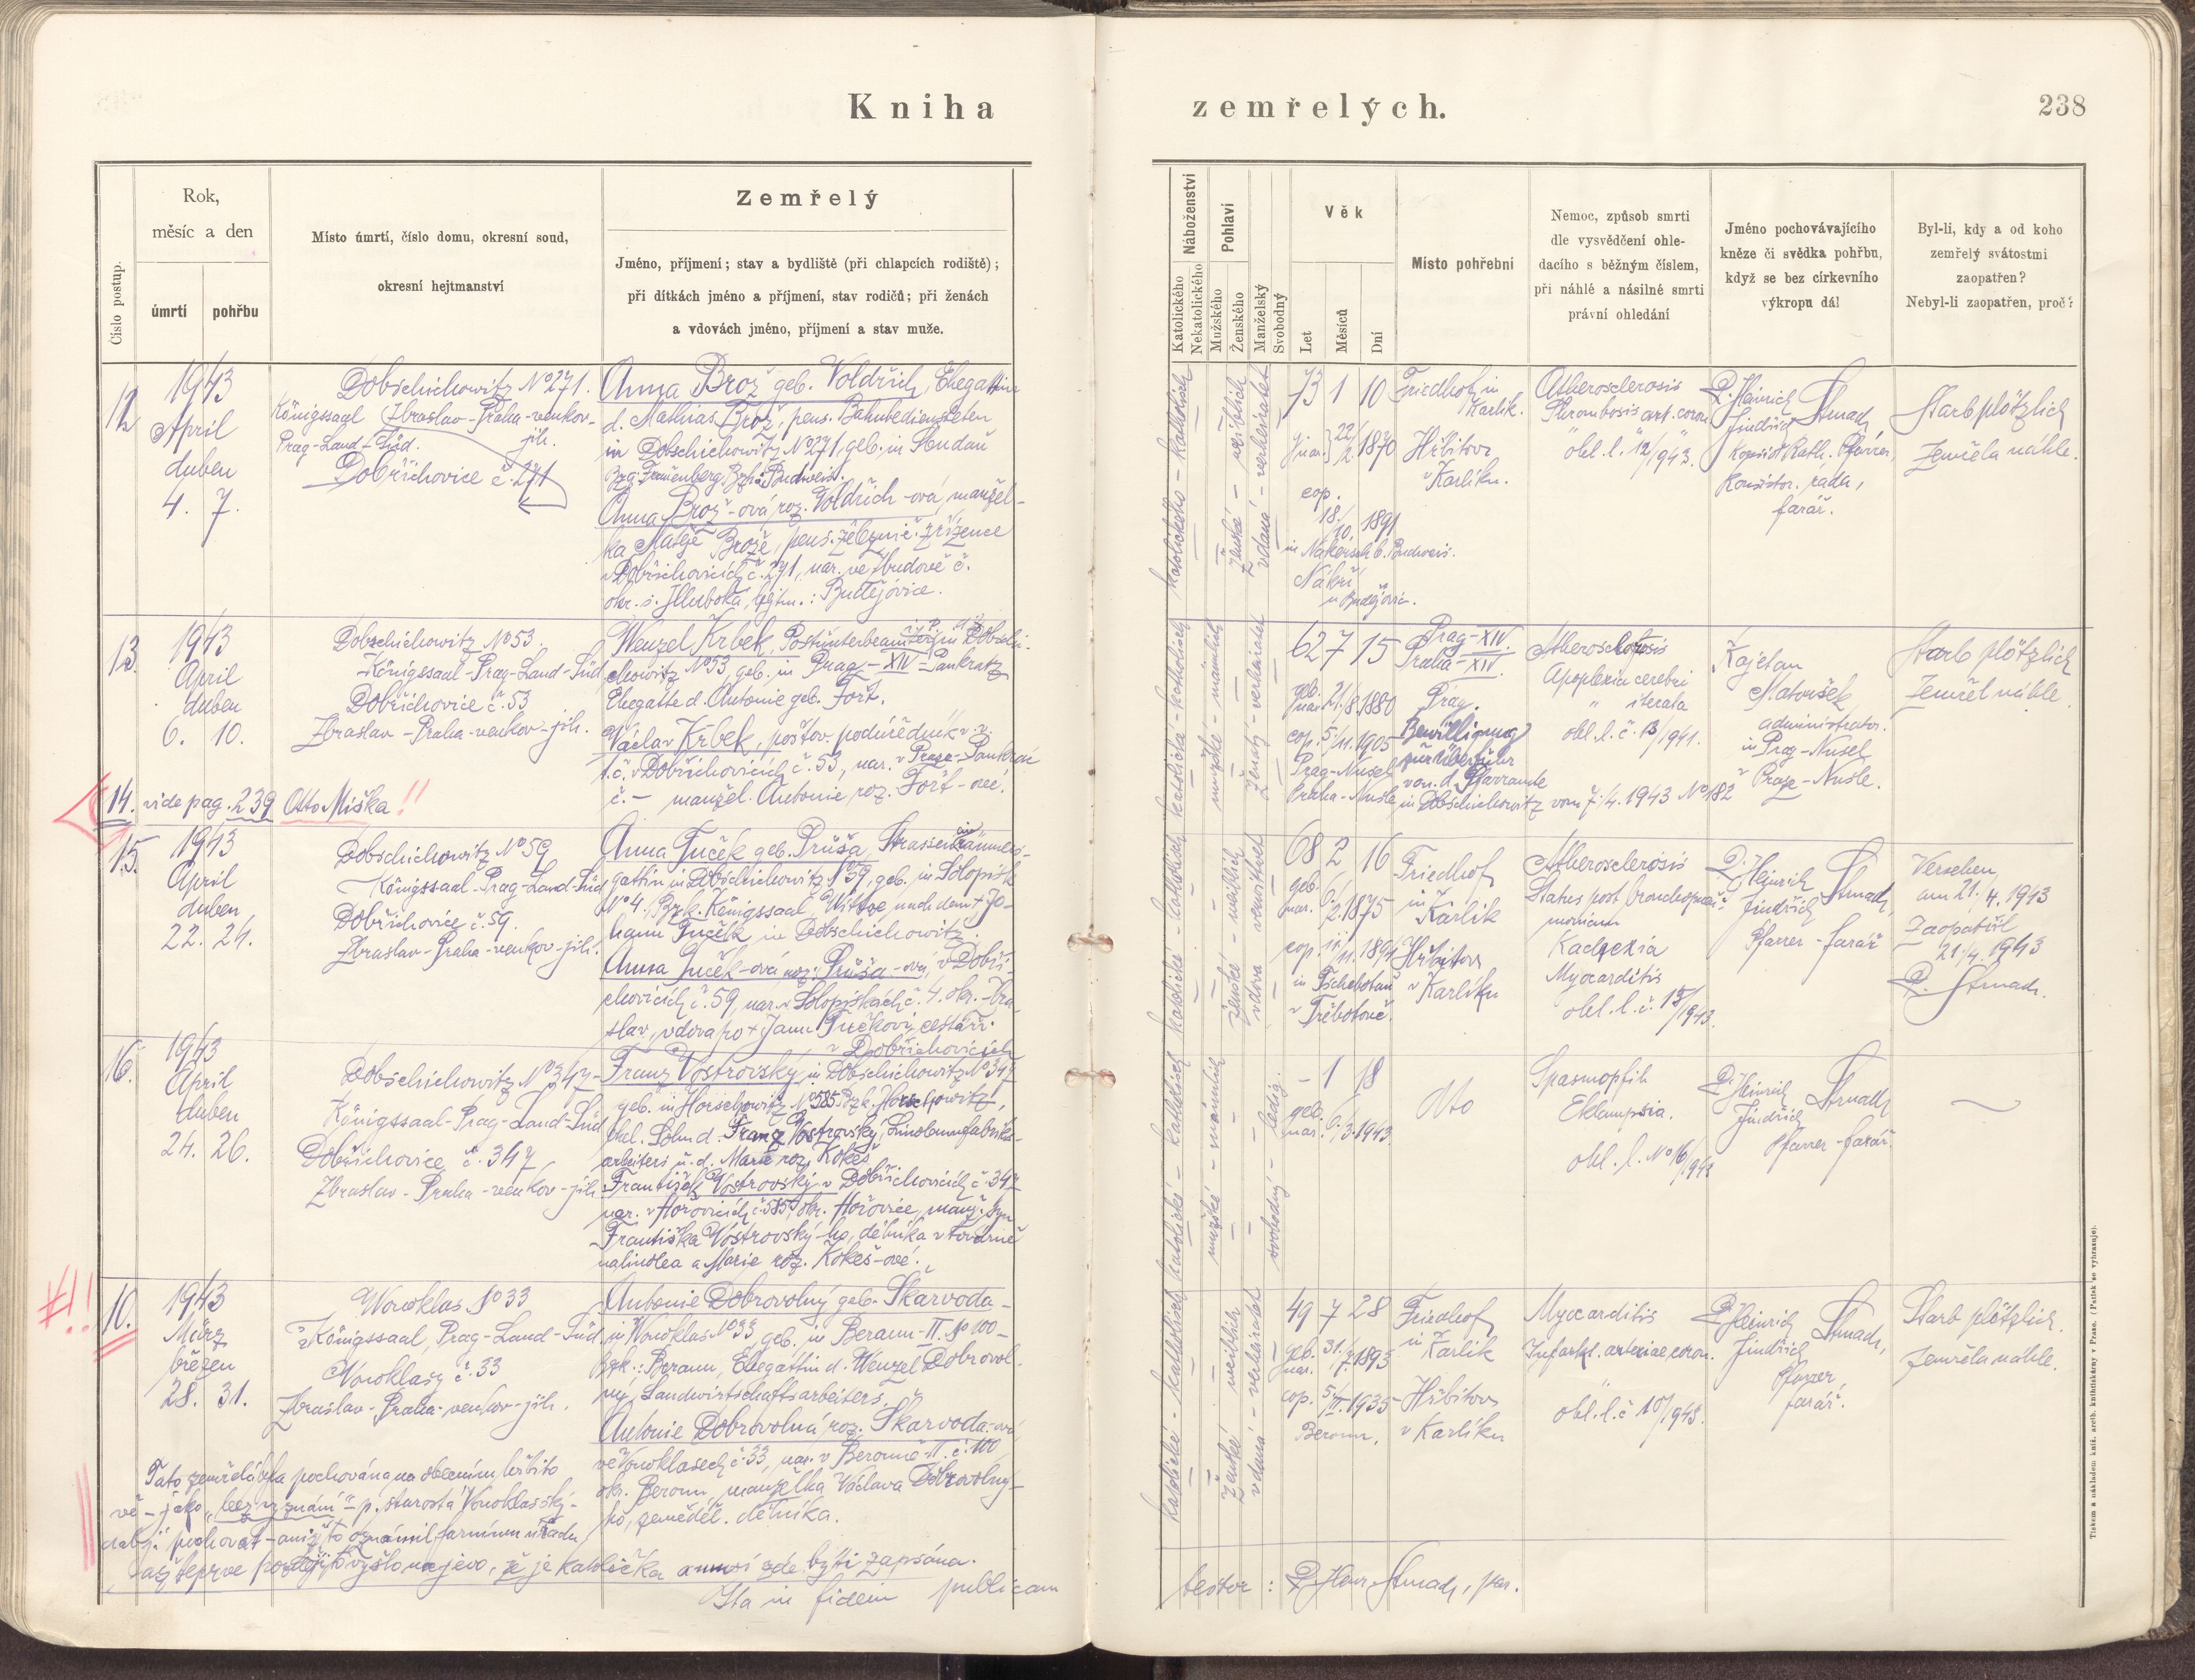 Kniha
zemřelých.
238
Číslo postup.
Rok,
měsíc a den
úmrtí
pohřbu
Místo úmrtí, číslo domu, okresní soud,
okresní hejtmanství
Zemřelý
Jméno, příjmení; stav a bydliště (při chlapcích rodiště);
při dítkách jméno a příjmení, stav rodičů; při ženách
a vdovách jméno, příjmení a stav muže.
Náboženství
Katolického
Nekatolického
Pohlaví
Mužského
Ženského
Manželský
Svobodný
Věk
Let
Měsíců
Dní
Místo pohřební
Nemoc, způsob smrti
dle vysvědčení ohle-
dacího s běžným číslem,
při náhlé a násilné smrti
právní ohledání
Jméno pochovávajícího
kněze či svědka pohřbu,
když se bez církevního
výkropu dál
Byl-li, kdy a od koho
zemřelý svátostmi
zaopatřen?
Nebyl-li zaopatřen, proč?
12
1943
April
duben
4. 7.
Dobschichowitz No 271.
Königssaal Zbraslav-Praha-venkov-
Prag-Land-Süd. jih.
Dobřichovice č. 271
Anna Brož geb. Voldřich, Ehegattin
d. Mathias Brož, pens. Bahnbediensteten
in Dobschichowitz No 271, geb. in
Frauenberg Budweis.
Anna Brož-ová roz. Voldřich-ová, manžel-
ka Matěje Brože, pens. železnič. zřízence
v Dobřichovicích č. 271, nar. ve Zbudově č.
okr. s. Hluboká, hejtm.: Budějovice.
katolického - katholisch
ženské - weiblich
vdaná - verheiratet
73 1 10
nar. 22/2 1870
cop.
18./10. 1891
in Nakersch b. Budweis.
Nákří
u Budějovic.
Friedhof in
Karlik.
Hřbitov
v Karlíku.
Atherosclerosis
Thrombosis art. coron.
ohl. l. 12/943.
P. Heinrich
Jindřich Strnad,
Konsist. Rath. Pfarrer,
Konsistor. rada,
farář.
Starb plötzlich
Zemřela náhle.
13.
1943
April
duben
6. 10.
Dobschichowitz No 53.
Königssaal-Prag-Land-Süd
Dobřichovice č. 53
Zbraslav-Praha-venkov-jih.
Wenzel Krbek, Postunterbeamter in Dobschi-
chowitz No 53, geb. in Prag-XIV-Pankratz
Ehegatte d. Antonie geb. Fořt.
Václav Krbek, poštov. podúředník v. v.
v Dobřichovicích č. 53, nar. v Praze-Pankrác
č. - manžel. Antonie roz. Fořt-ové.
katolické - katholisch
mužské - männlich
ženatý - verheiratet
62 7 15
geb.
nar. 21./8. 1880
cop. 5./11. 1905
Prag-Nusel
Praha-Nusle
Prag-XIV.
Praha-XIV.
Prag.
Bewilligung
zur Überfuhr
von d. Pfarramte
in Dobschichowitz vom 7./4. 1943 No 182
Atherosclerosis
Apoplexia cerebri
" iterata
ohl. l. č. 13/1941.
Kajetan
Matoušek
administrator.
in Prag-Nusel
v Praze-Nusle.
Starb plötzlich
Zemřel náhle.
14. vide pag. 239 Otto Miška!!
15.
1943
April
duben
22. 24.
Dobschichowitz No 59
Königssaal-Prag-Land-Süd
Dobřichovice č. 59.
Zbraslav-Praha-venkov-jih.
Anna Tuček geb. Průša, Strasseneinräumers-
gattin in Dobschichowitz No 59, geb. in Solopisk
No 4. Bzk. Königssaal, Witwe nach dem + Jo-
hann Tuček in Dobschichowitz.
Anna Tuček-ová roz. Průša-ová, v Dobři-
chovicích č. 59, nar. v Solopiskách č. 4. okr. Zbra-
slav, vdova po + Janu Tučkovi, cestáři
v Dobřichovicích
katolické - katholisch
ženské - weiblich
vdova - verwitwet
68 2 16
geb.
nar. 6./2. 1875
cop. 11./11. 1894
in Tschebotau
v Třebotově.
Friedhof
in
Karlik
Hřbitov
v Karlíku
Atherosclerosis
Status post bronchopneu-
moniam
Kachexia
Myocarditis
ohl. l. č. 15/1943.
P. Heinrich
Jindřich Strnad,
Pfarrer - farář
Versehen
am 21./4. 1943
Zaopatřil
21./4. 1943
P. Strnad.
16.
1943
April
duben
24. 26.
Dobschichowitz No 347-
Königssaal-Prag-Land-Süd
Dobřichovice č. 347,
Zbraslav-Praha-venkov-jih
Franz Vostrovský in Dobschichowitz No 347
geb. in Horschowitz No 585 Bzk. Horschowitz,
ehel. Sohn d. Franz Vostrovský, Linoleumfabriks-
arbeiters u. d. Marie roz. Kokeš
František Vostrovský v Dobřichovicích č. 347
nar. v Hořovicích č. 585, okr. Hořovice, manž. syn
Františka Vostrovský-ho, dělníka v továrně
na linolea a Marie roz. Kokeš-ové.
katolické - katholisch
mužské - männlich
svobodný - ledig.
- 1 18
geb.
nar. 6./3. 1943.
Dto
Spasmophil.
Eklampsia.
ohl. l. No 16/1943
P. Heinrich
Jindřich Strnad
Pfarrer - farář.
#!!
10.
1943
März
březen
28. 31.
Wonoklas No 33
Königssaal, Prag-Land-Süd
Vonoklasy č. 33
Zbraslav-Praha-venkov-jih.
Antonie Dobrovolný geb. Škarvoda -
in Wonoklas No 33, geb. in Beraun-II. No 100-
Bzk.: Beraun, Ehegattin d. Wenzel Dobrovol-
ný, Landwirtschaftsarbeiters.
Antonie Dobrovolná roz. Škarvoda-ová
ve Vonoklasech č. 33, nar. v Berouně-II. č. 100
okr. Beroun, manželka Václava Dobrovolný-
ho, zeměděl. dělníka.
katolické - katholisch
ženské weiblich
vdaná - verheiratet
49 7 28
geb. 31./7. 1893
nar.
cop. 5./II. 1935
Beroun.
Friedhof
in Karlik
Hřbitov
v Karlíku
Myocarditis
Infarkt. arteriae coron.
ohl. l. č. 10/1943.
P. Heinrich
Jindřich Strnad,
Pfarrer
farář.
Starb plötzlich.
Zemřela náhle.
Tato zemřelá byla pochována na obecním hřbito-
vě - jako "bez vyznání" - p. starosta Vonoklasský
dal ji pochovat - aniž to oznámil farnímu úřadu,
až teprve později to vyšlo na jevo, že je katolička a musí zde býti zapsána.
Ita in fidem publicam
testor: P. Henr. Strnad, par.
Tiskem a nákladem kníž. arcib. knihtiskárny v Praze. (Patisk se vyhrazuje).